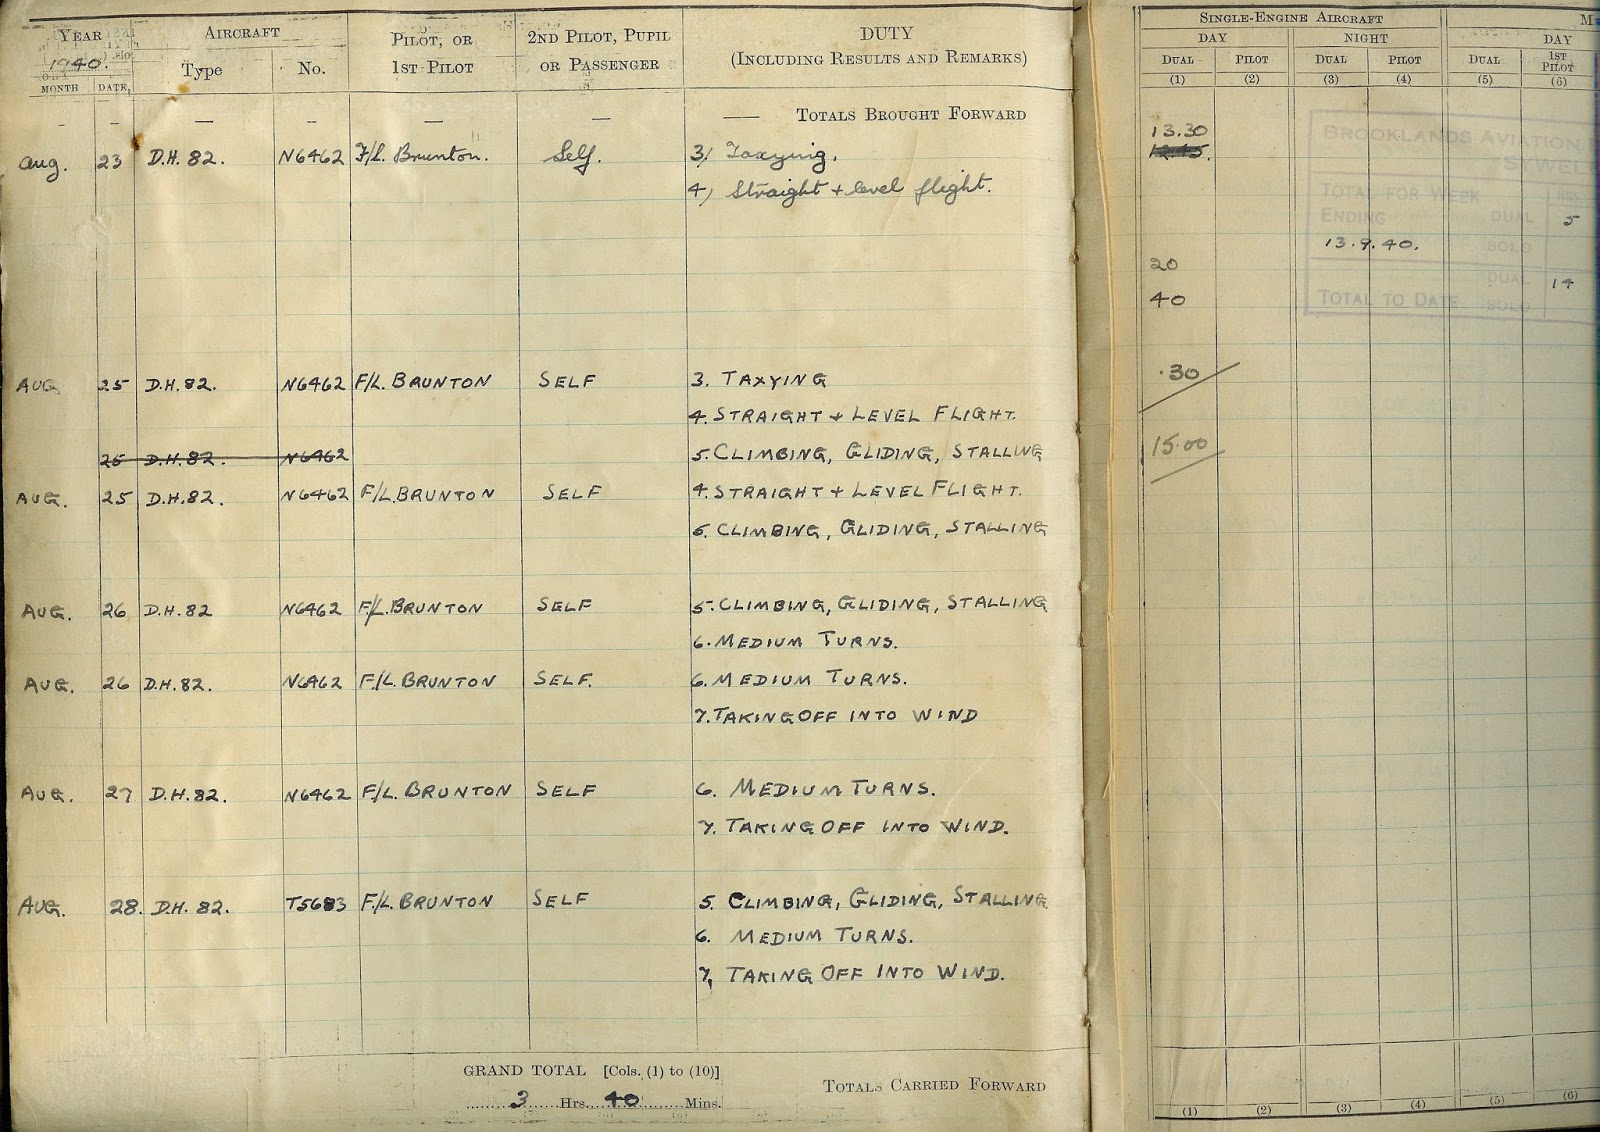 YEAR AIRCRAFT PILOT, OR 2ND PILOT, PUPIL DUTY
1940. Type No. 1ST PILOT OR PASSENGER (INCLUDING RESULTS AND REMARKS)
MONTH DATE
— — — — — — — TOTALS BROUGHT FORWARD
Aug. 23 D.H. 82. N6462 F/L. Brunton. Self. 3) Taxying.
4) Straight + level flight.
AUG 25 D.H. 82. N6462 F/L. BRUNTON SELF 3. TAXYING
4. STRAIGHT + LEVEL FLIGHT.
25 D.H. 82. N6462 5. CLIMBING, GLIDING, STALLING
AUG. 25 D.H. 82. N6462 F/L. BRUNTON SELF 4. STRAIGHT + LEVEL FLIGHT.
5. CLIMBING, GLIDING, STALLING
AUG. 26 D.H. 82 N6462 F/L. BRUNTON SELF 5. CLIMBING, GLIDING, STALLING
6. MEDIUM TURNS.
AUG. 26 D.H. 82. N6462 F/L. BRUNTON SELF. 6. MEDIUM TURNS.
7. TAKING OFF INTO WIND
AUG. 27 D.H. 82. N6462 F/L. BRUNTON SELF 6. MEDIUM TURNS.
7. TAKING OFF INTO WIND.
AUG. 28. D.H. 82. T5683 F/L. BRUNTON SELF 5. CLIMBING, GLIDING, STALLING
6. MEDIUM TURNS.
7, TAKING OFF INTO WIND.
GRAND TOTAL [Cols. (1) to (10)]
3 Hrs. 40 Mins.
TOTALS CARRIED FORWARD
SINGLE-ENGINE AIRCRAFT M
DAY NIGHT DAY
DUAL PILOT DUAL PILOT DUAL 1ST PILOT
(1) (2) (3) (4) (5) (6)
13.30
12.45.
BROOKLANDS AVIATION
SYWEL
TOTAL FOR WEEK
ENDING DUAL 5
13.9.40. SOLO
20 DUAL 14
40 TOTAL TO DATE SOLO
.30
15.00
(1) (2) (3) (4) (5) (6)